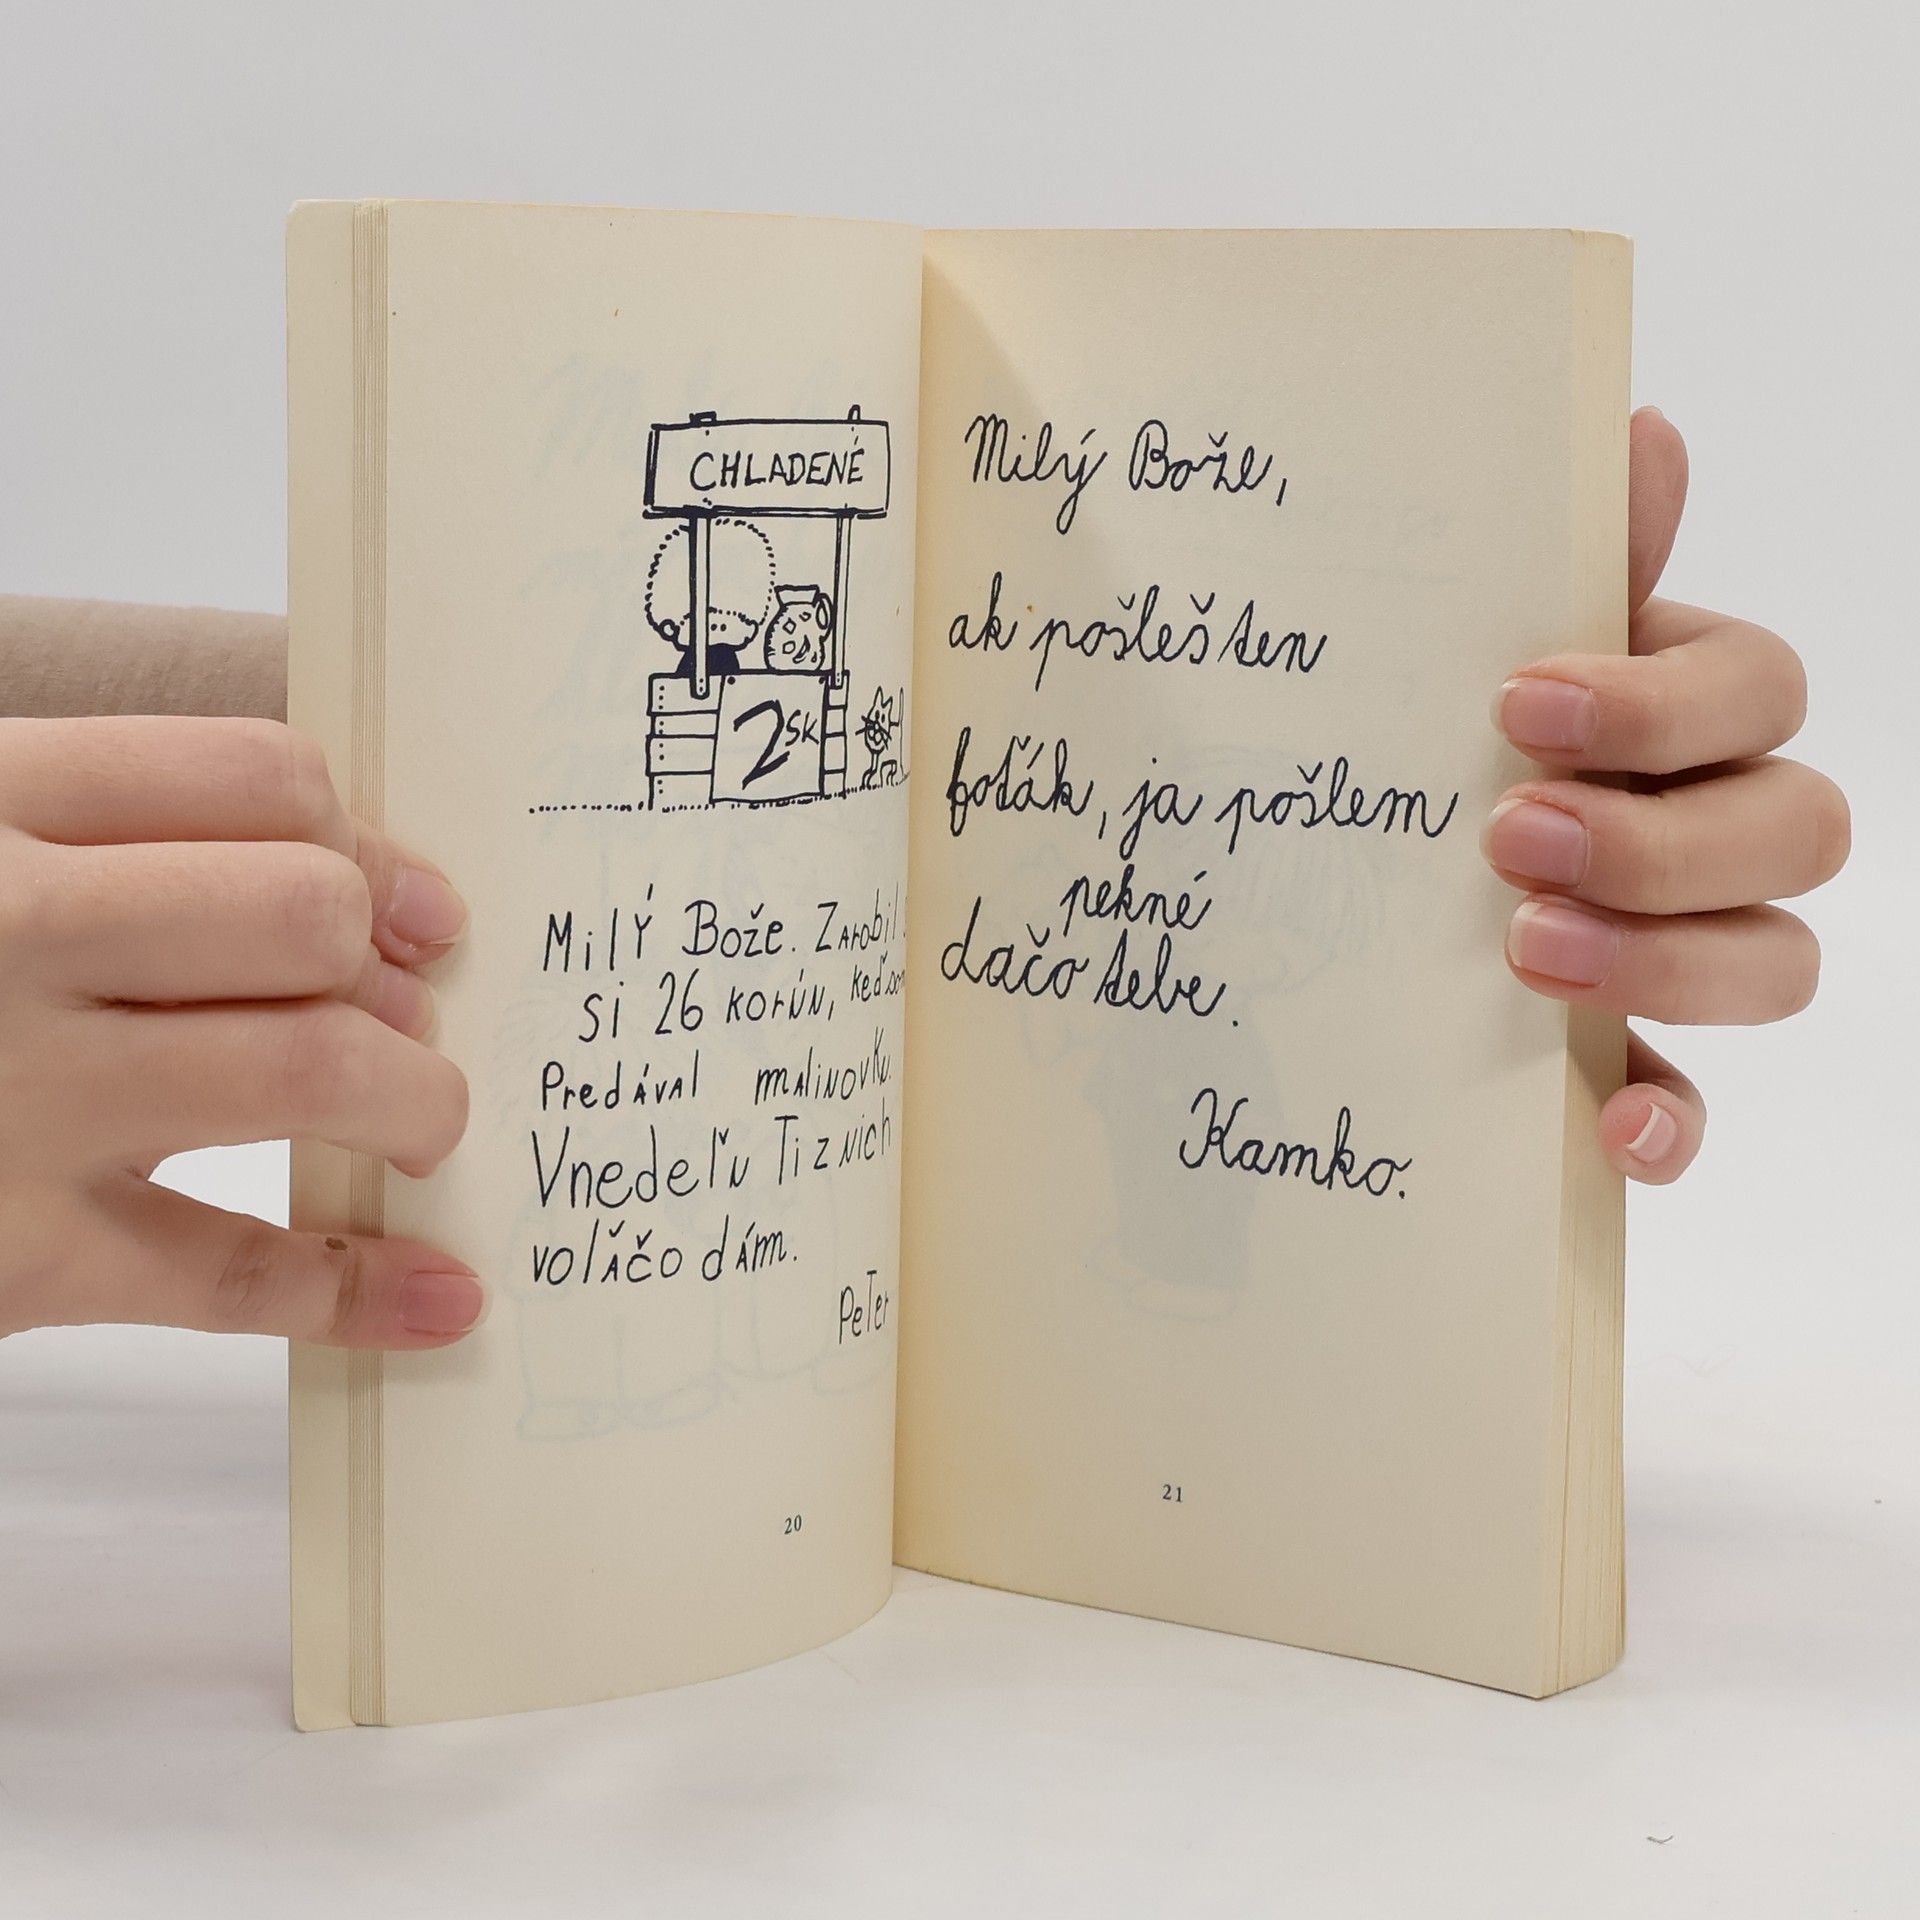 CHLADENÉ
2 SK
Milý Bože. Zarobil
si 26 korún, keď som
Predával malinovku.
V nedeľu Ti z nich
voľáčo dám.
Peter
20
Milý Bože,
ak pošleš ten
foťák, ja pošlem
pekné
dačo tebe.
Kamko.
21